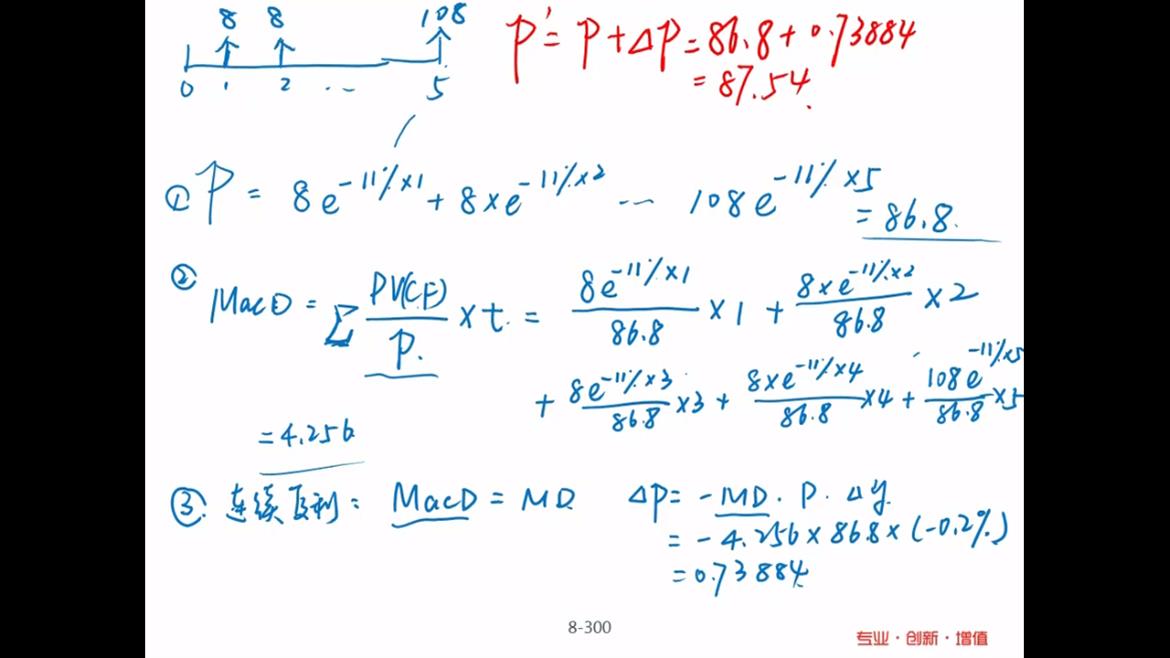 8 8 108
0 1 2 ... 5
P' = P + ΔP = 86.8 + 0.73884
= 87.54.
① P = 8e^{-11%×1} + 8×e^{-11%×2} ... 108e^{-11%×5}
= 86.8.
② MacD = Σ \frac{PV(CF)}{P.} × t. = \frac{8e^{-11%×1}}{86.8} × 1 + \frac{8×e^{-11%×2}}{86.8} × 2
+ \frac{8e^{-11%×3}}{86.8} ×3 + \frac{8×e^{-11%×4}}{86.8} ×4 + \frac{108e^{-11%×5}}{86.8} ×5
= 4.256
③. 连续复利: MacD = MD. ΔP = -MD · P · Δy.
= -4.256 × 86.8 × (-0.2%)
= 0.73884
8-300
专业·创新·增值